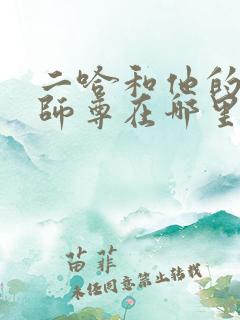 二哈和他的
師尊在哪里
苗菲
未经同意禁止转载